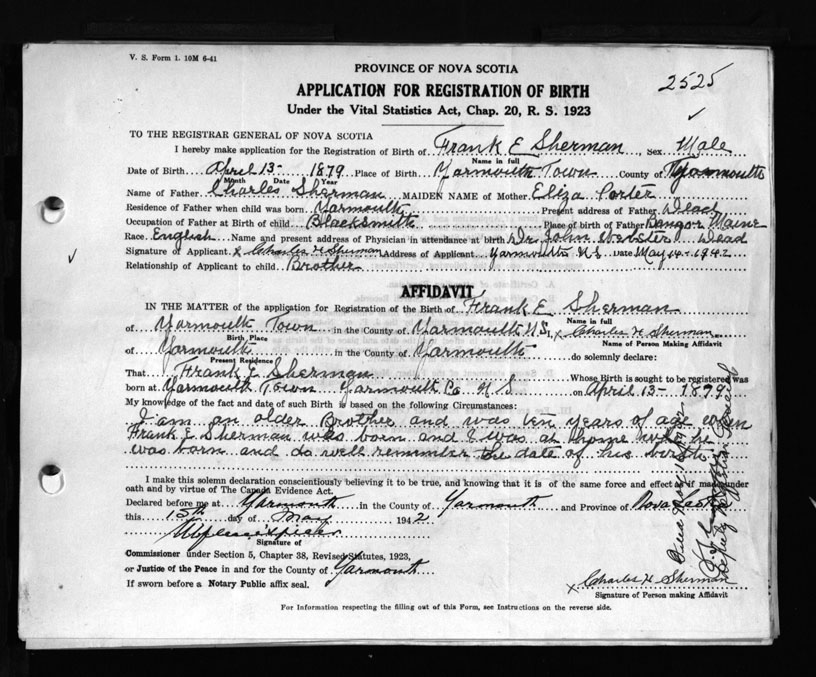 V. S. Form 1. 10M 6-41
PROVINCE OF NOVA SCOTIA
2525
APPLICATION FOR REGISTRATION OF BIRTH
Under the Vital Statistics Act, Chap. 20, R. S. 1923
TO THE REGISTRAR GENERAL OF NOVA SCOTIA
I hereby make application for the Registration of Birth of Frank E Sherman, Sex Male
Name in full
Date of Birth April 13 - 1879 Place of Birth Yarmouth Town County of Yarmouth
Month Date Year
Name of Father Charles Sherman MAIDEN NAME of Mother Eliza Porter
Residence of Father when child was born Yarmouth Present address of Father Dead
Occupation of Father at Birth of child Blacksmith Place of birth of Father Bangor Maine
Race English Name and present address of Physician in attendance at birth Dr. John Webster Dead
Signature of Applicant x Charles H Sherman Address of Applicant Yarmouth N.S. Date May 14 - 1942
Relationship of Applicant to child Brother
AFFIDAVIT
IN THE MATTER of the application for Registration of the Birth of Frank E Sherman
Name in full
of Yarmouth Town in the County of Yarmouth N.S. x Charles H Sherman
Birth Place
Name of Person Making Affidavit
of Yarmouth in the County of Yarmouth do solemnly declare:
Present Residence
That Frank E Sherman Whose Birth is sought to be registered was
born at Yarmouth Town Yarmouth Co N S on April 13 - 1879
My knowledge of the fact and date of such Birth is based on the following Circumstances:
I am an older Brother and was ten years of age when
Frank E Sherman was born and I was at home when he
was born and do well remember the date of his birth
I make this solemn declaration conscientiously believing it to be true, and knowing that it is of the same force and effect as if made under
oath and by virtue of The Canada Evidence Act.
Declared before me at Yarmouth in the County of Yarmouth and Province of Nova Scotia
this 15th day of May 1942
Signature of
Commissioner under Section 5, Chapter 38, Revised Statutes, 1923,
or Justice of the Peace in and for the County of Yarmouth
If sworn before a Notary Public affix seal.
x Charles H Sherman
Signature of Person making Affidavit
For Information respecting the filling out of this Form, see Instructions on the reverse side.
Deputy Registrar General